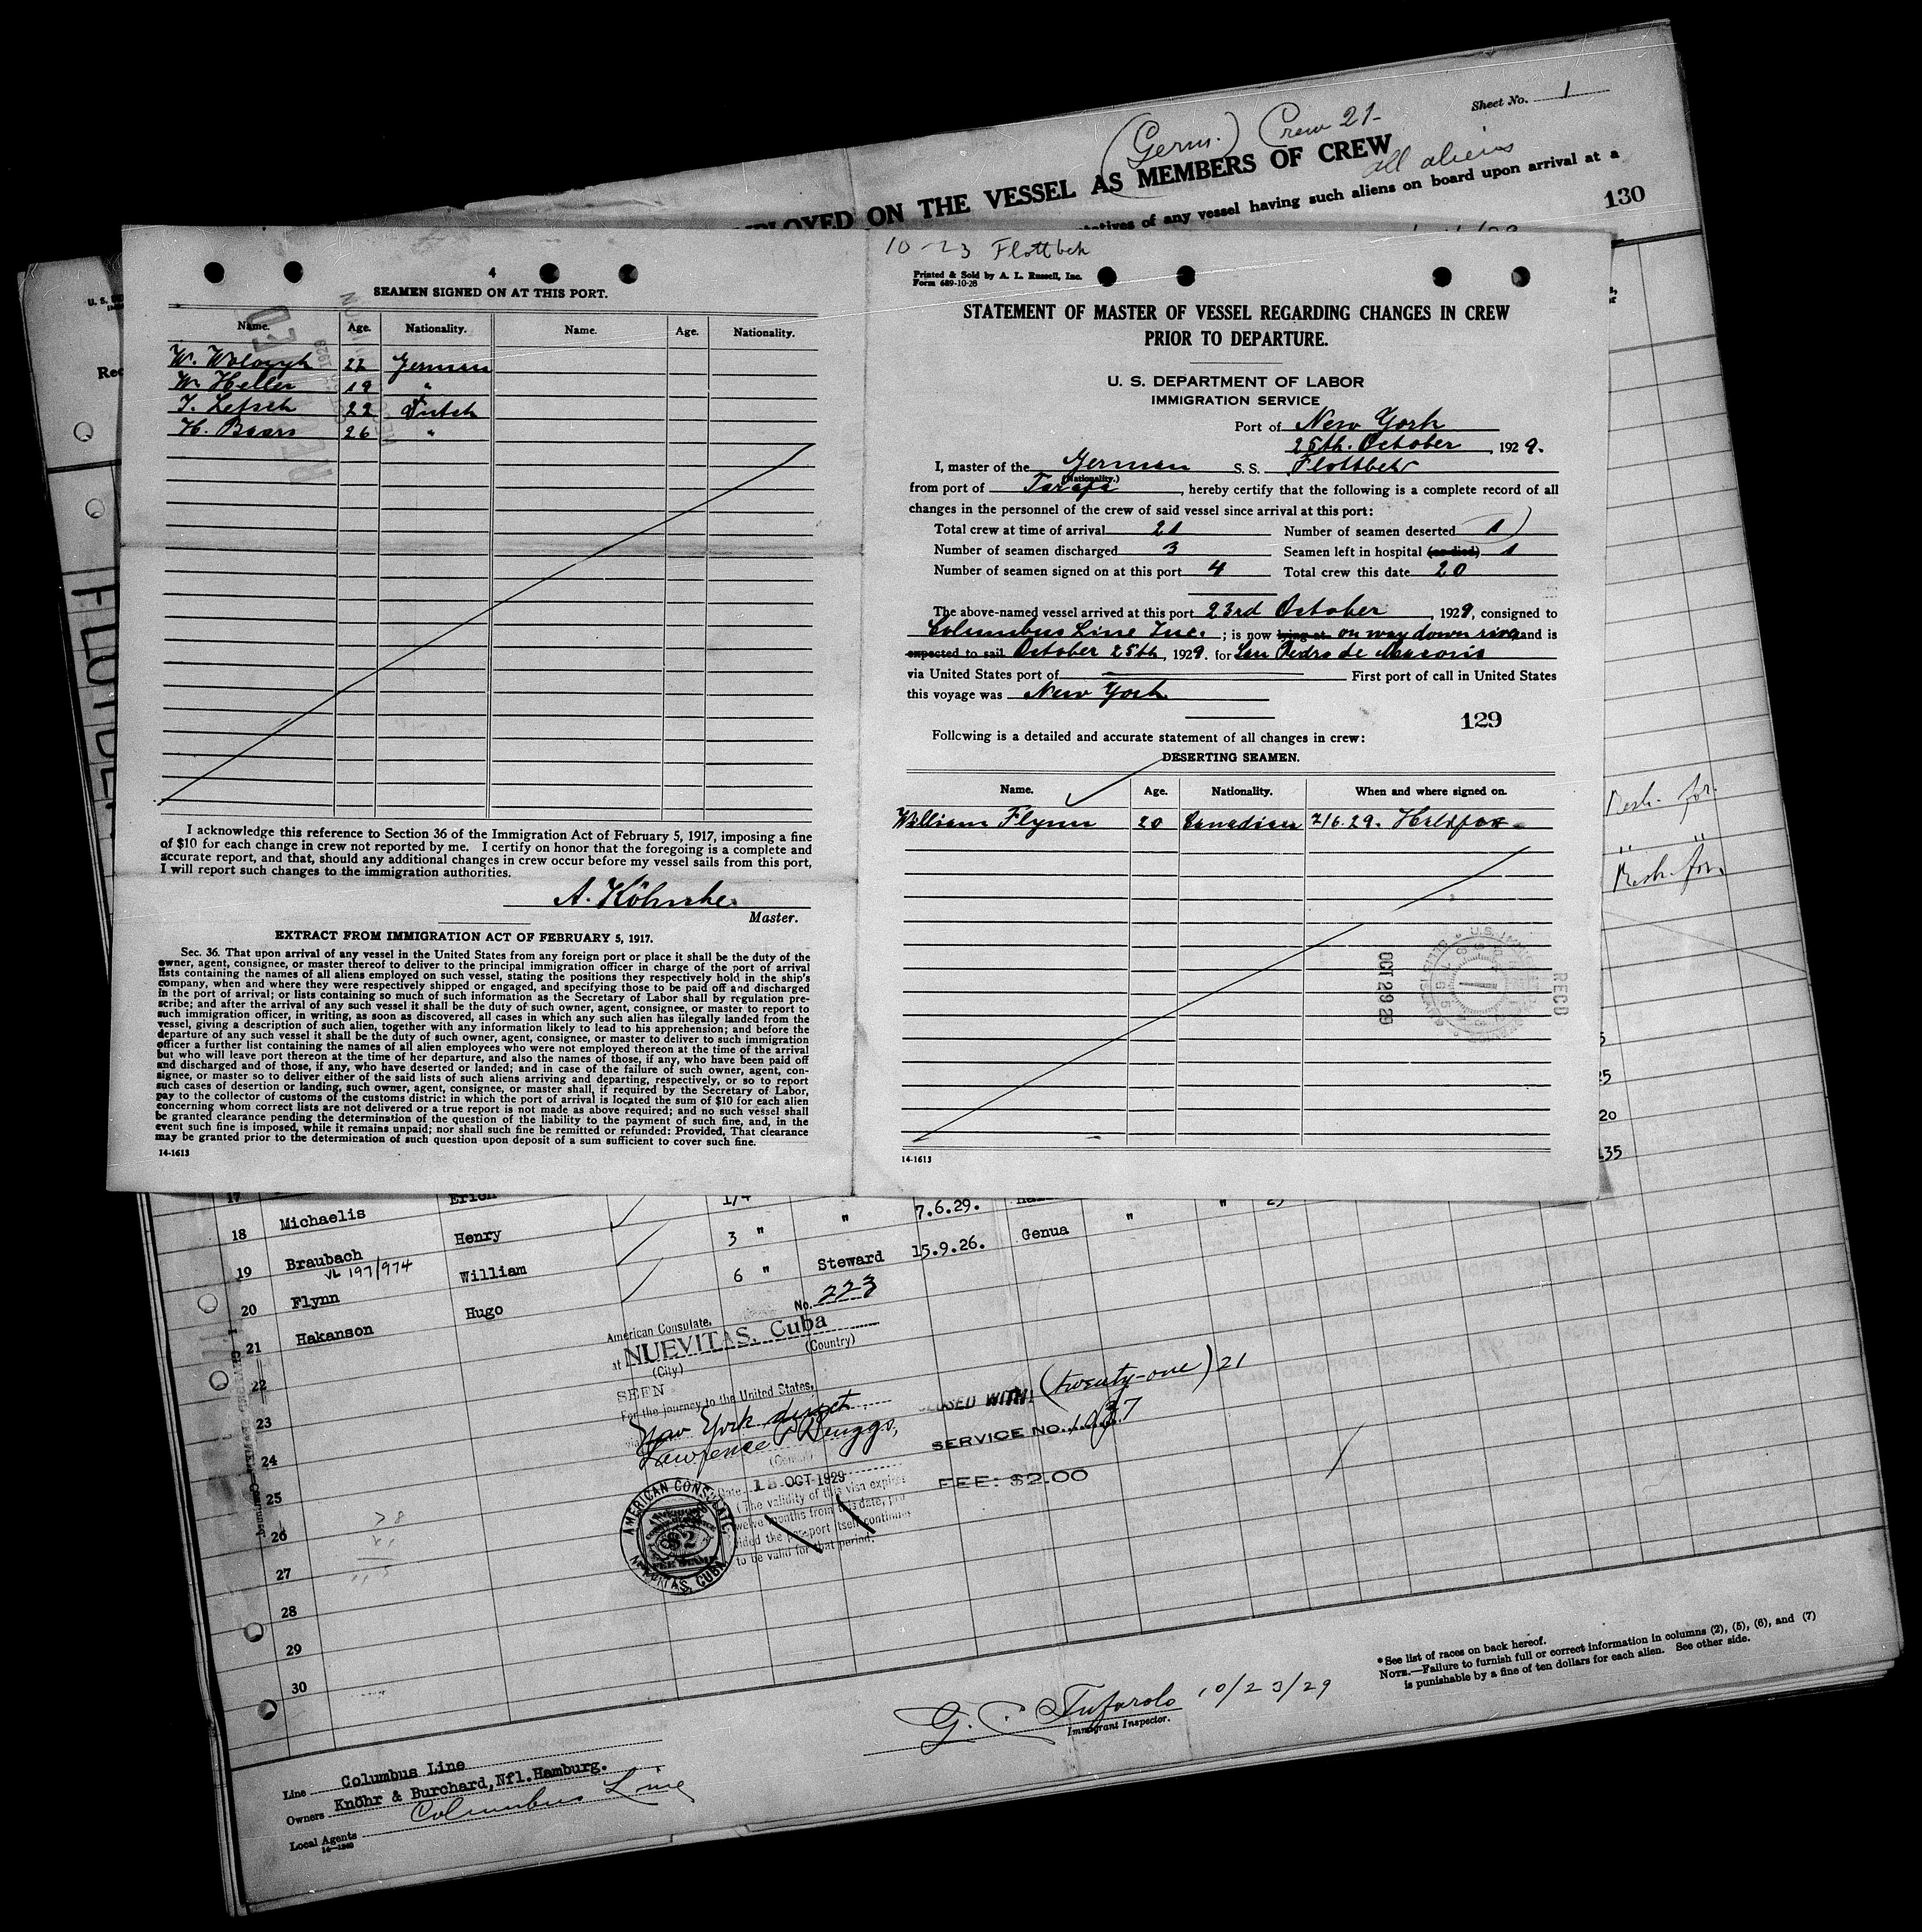 Sheet No. 1
(Germ.) Crew 21-
all aliens
ON THE VESSEL AS MEMBERS OF CREW
of any vessel having such aliens on board upon arrival at a
130
4
SEAMEN SIGNED ON AT THIS PORT.
Name. Age. Nationality. Name. Age. Nationality.
22 German
W. Heller 19 "
22 Dutch
H. Baars 26 "
I acknowledge this reference to Section 36 of the Immigration Act of February 5, 1917, imposing a fine
of $10 for each change in crew not reported by me. I certify on honor that the foregoing is a complete and
accurate report, and that, should any additional changes in crew occur before my vessel sails from this port,
I will report such changes to the immigration authorities.
A. Köhnke.
Master.
EXTRACT FROM IMMIGRATION ACT OF FEBRUARY 5, 1917.
Sec. 36. That upon arrival of any vessel in the United States from any foreign port or place it shall be the duty of the
owner, agent, consignee, or master thereof to deliver to the principal immigration officer in charge of the port of arrival
lists containing the names of all aliens employed on such vessel, stating the positions they respectively hold in the ship's
company, when and where they were respectively shipped or engaged, and specifying those to be paid off and discharged
in the port of arrival; or lists containing so much of such information as the Secretary of Labor shall by regulation pre-
scribe; and after the arrival of any such vessel it shall be the duty of such owner, agent, consignee, or master to report to
such immigration officer, in writing, as soon as discovered, all cases in which any such alien has illegally landed from the
vessel, giving a description of such alien, together with any information likely to lead to his apprehension; and before the
departure of any such vessel it shall be the duty of such owner, agent, consignee, or master to deliver to such immigration
officer a further list containing the names of all alien employees who were not employed thereon at the time of the arrival
but who will leave port thereon at the time of her departure, and also the names of those, if any, who have been paid off
and discharged and of those, if any, who have deserted or landed; and in case of the failure of such owner, agent, con-
signee, or master so to deliver either of the said lists of such aliens arriving and departing, respectively, or so to report
such cases of desertion or landing, such owner, agent, consignee, or master shall, if required by the Secretary of Labor,
pay to the collector of customs of the customs district in which the port of arrival is located the sum of $10 for each alien
concerning whom correct lists are not delivered or a true report is not made as above required; and no such vessel shall
be granted clearance pending the determination of the question of the liability to the payment of such fine, and, in the
event such fine is imposed, while it remains unpaid; nor shall such fine be remitted or refunded: Provided, That clearance
may be granted prior to the determination of such question upon deposit of a sum sufficient to cover such fine.
14-1613
10-23 Flottbek
Printed & Sold by A. L. Russell, Inc.
Form 689-10-28
STATEMENT OF MASTER OF VESSEL REGARDING CHANGES IN CREW
PRIOR TO DEPARTURE.
U. S. DEPARTMENT OF LABOR
IMMIGRATION SERVICE
Port of New York
25th. October, 1929.
I, master of the German S. S. Flottbek
(Nationality.)
from port of Tarafa, hereby certify that the following is a complete record of all
changes in the personnel of the crew of said vessel since arrival at this port:
Total crew at time of arrival 21 Number of seamen deserted 1
Number of seamen discharged 3 Seamen left in hospital (or died) 1
Number of seamen signed on at this port 4 Total crew this date 20
The above-named vessel arrived at this port 23rd October, 1929, consigned to
Columbus Line Inc.; is now lying at on way down river and is
expected to sail October 25th, 1929. for San Pedro de Macoris
via United States port of First port of call in United States
this voyage was New York
129
Following is a detailed and accurate statement of all changes in crew:
DESERTING SEAMEN.
Name. Age. Nationality. When and where signed on.
William Flynn 20 Canadian 7/6.29. Halifax
OCT 29 29
RECD
14-1613
Desh. for.
"
Desh. for.
5
25
20
135
17 Erich 1/4
18 Michaelis Henry 3 " " 7.6.29.
19 Braubach William 6 " Steward 15.9.26. Genua " "
VL 197/974
20 Flynn Hugo
21 Hakanson
22
23
24
25
26
27
28
29
30
No. 223
American Consulate,
at NUEVITAS, Cuba
(City) (Country)
SEEN
For the journey to the United States,
New York direct
(Consul)
Date 1 OCT 1929
(The validity of this visa expires
twelve months from this date, pro
vided the passport itself continues
to be valid for that period.
AMERICAN CONSULATE
$2
FEE STAMP
NUEVITAS, CUBA
CLOSED WITH (twenty-one) 21
SERVICE NO. 1037
FEE: $2.00
* See list of races on back hereof.
NOTE.—Failure to furnish full or correct information in columns (2), (5), (6), and (7)
is punishable by a fine of ten dollars for each alien. See other side.
G. C. Tufarolo 10/23/29
Immigrant Inspector.
Line Columbus Line
Owners Knöhr & Burchard, Nfl. Hamburg.
Local Agents Columbus Line
14-1240